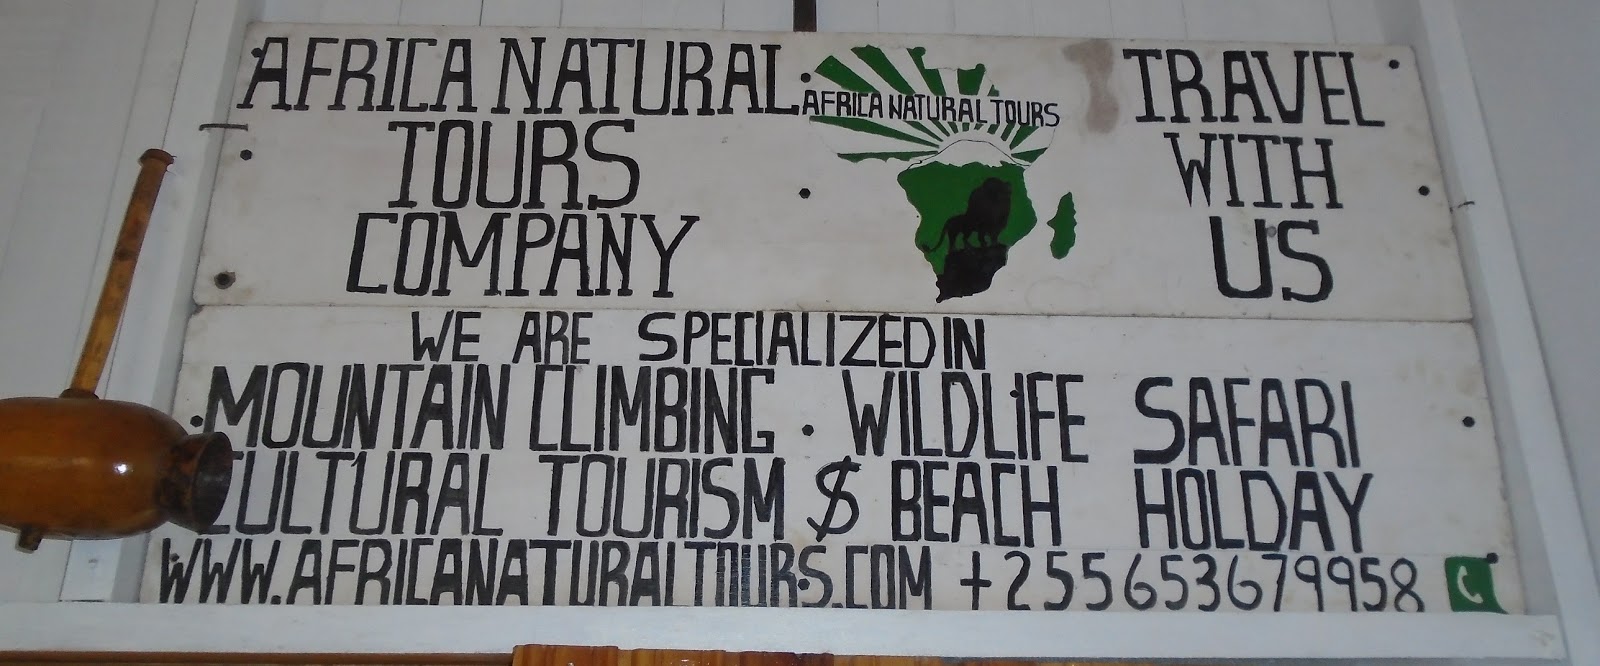 AFRICA NATURAL
TOURS
COMPANY
AFRICA NATURAL TOURS
TRAVEL
WITH
US
WE ARE SPECIALIZED IN
MOUNTAIN CLIMBING . WILDLIFE SAFARI
CULTURAL TOURISM $ BEACH HOLDAY
WWW.AFRICANATURALTOURS.COM +255653679958